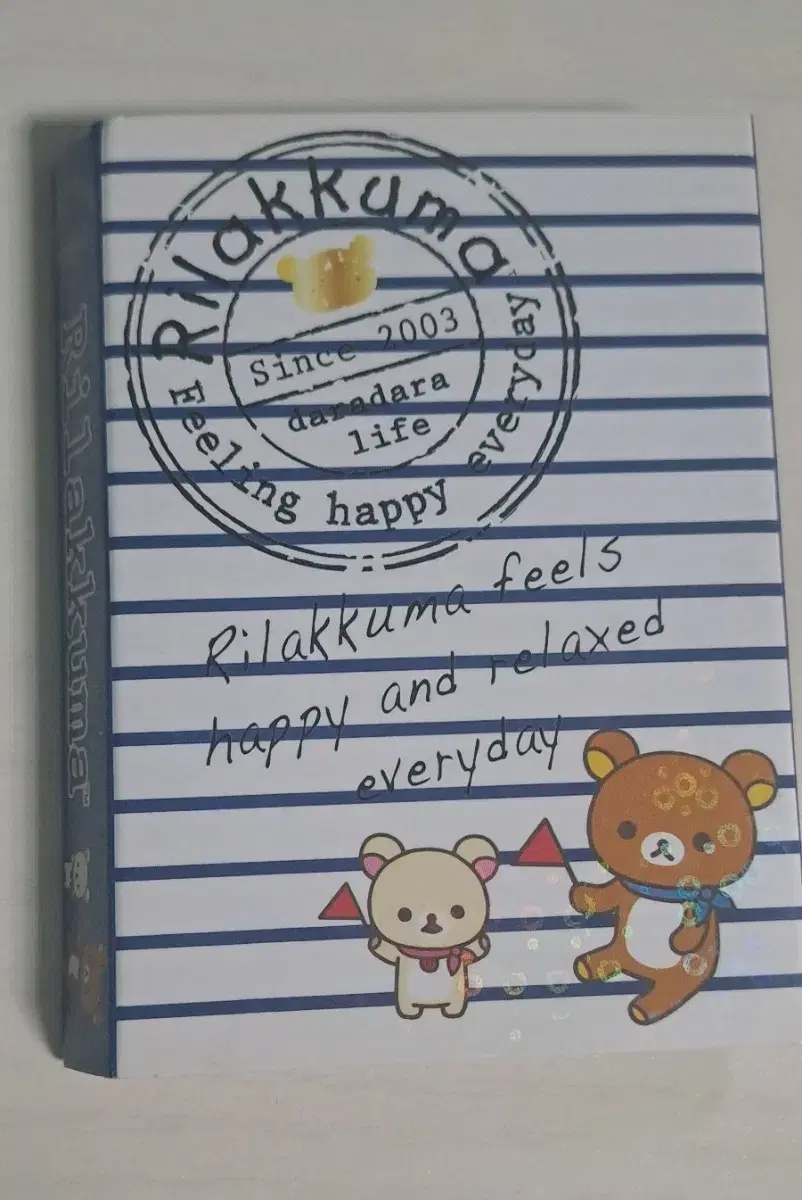 Rilakkuma
Since 2003
daradara
life
Feeling happy everyday
Rilakkuma feels
happy and relaxed
everyday
Rilakkuma